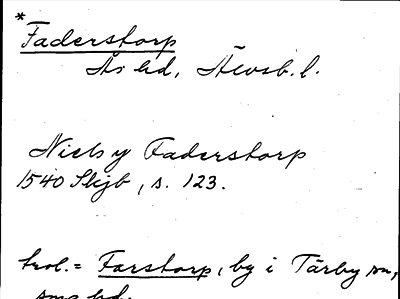 *
Faderstorp
Ås hd, Älvsb. l.
Niels y Faderstorp
1540 Skjb, s. 123.
trol. = Farstorp, by i Tärby sn,
sms hd.